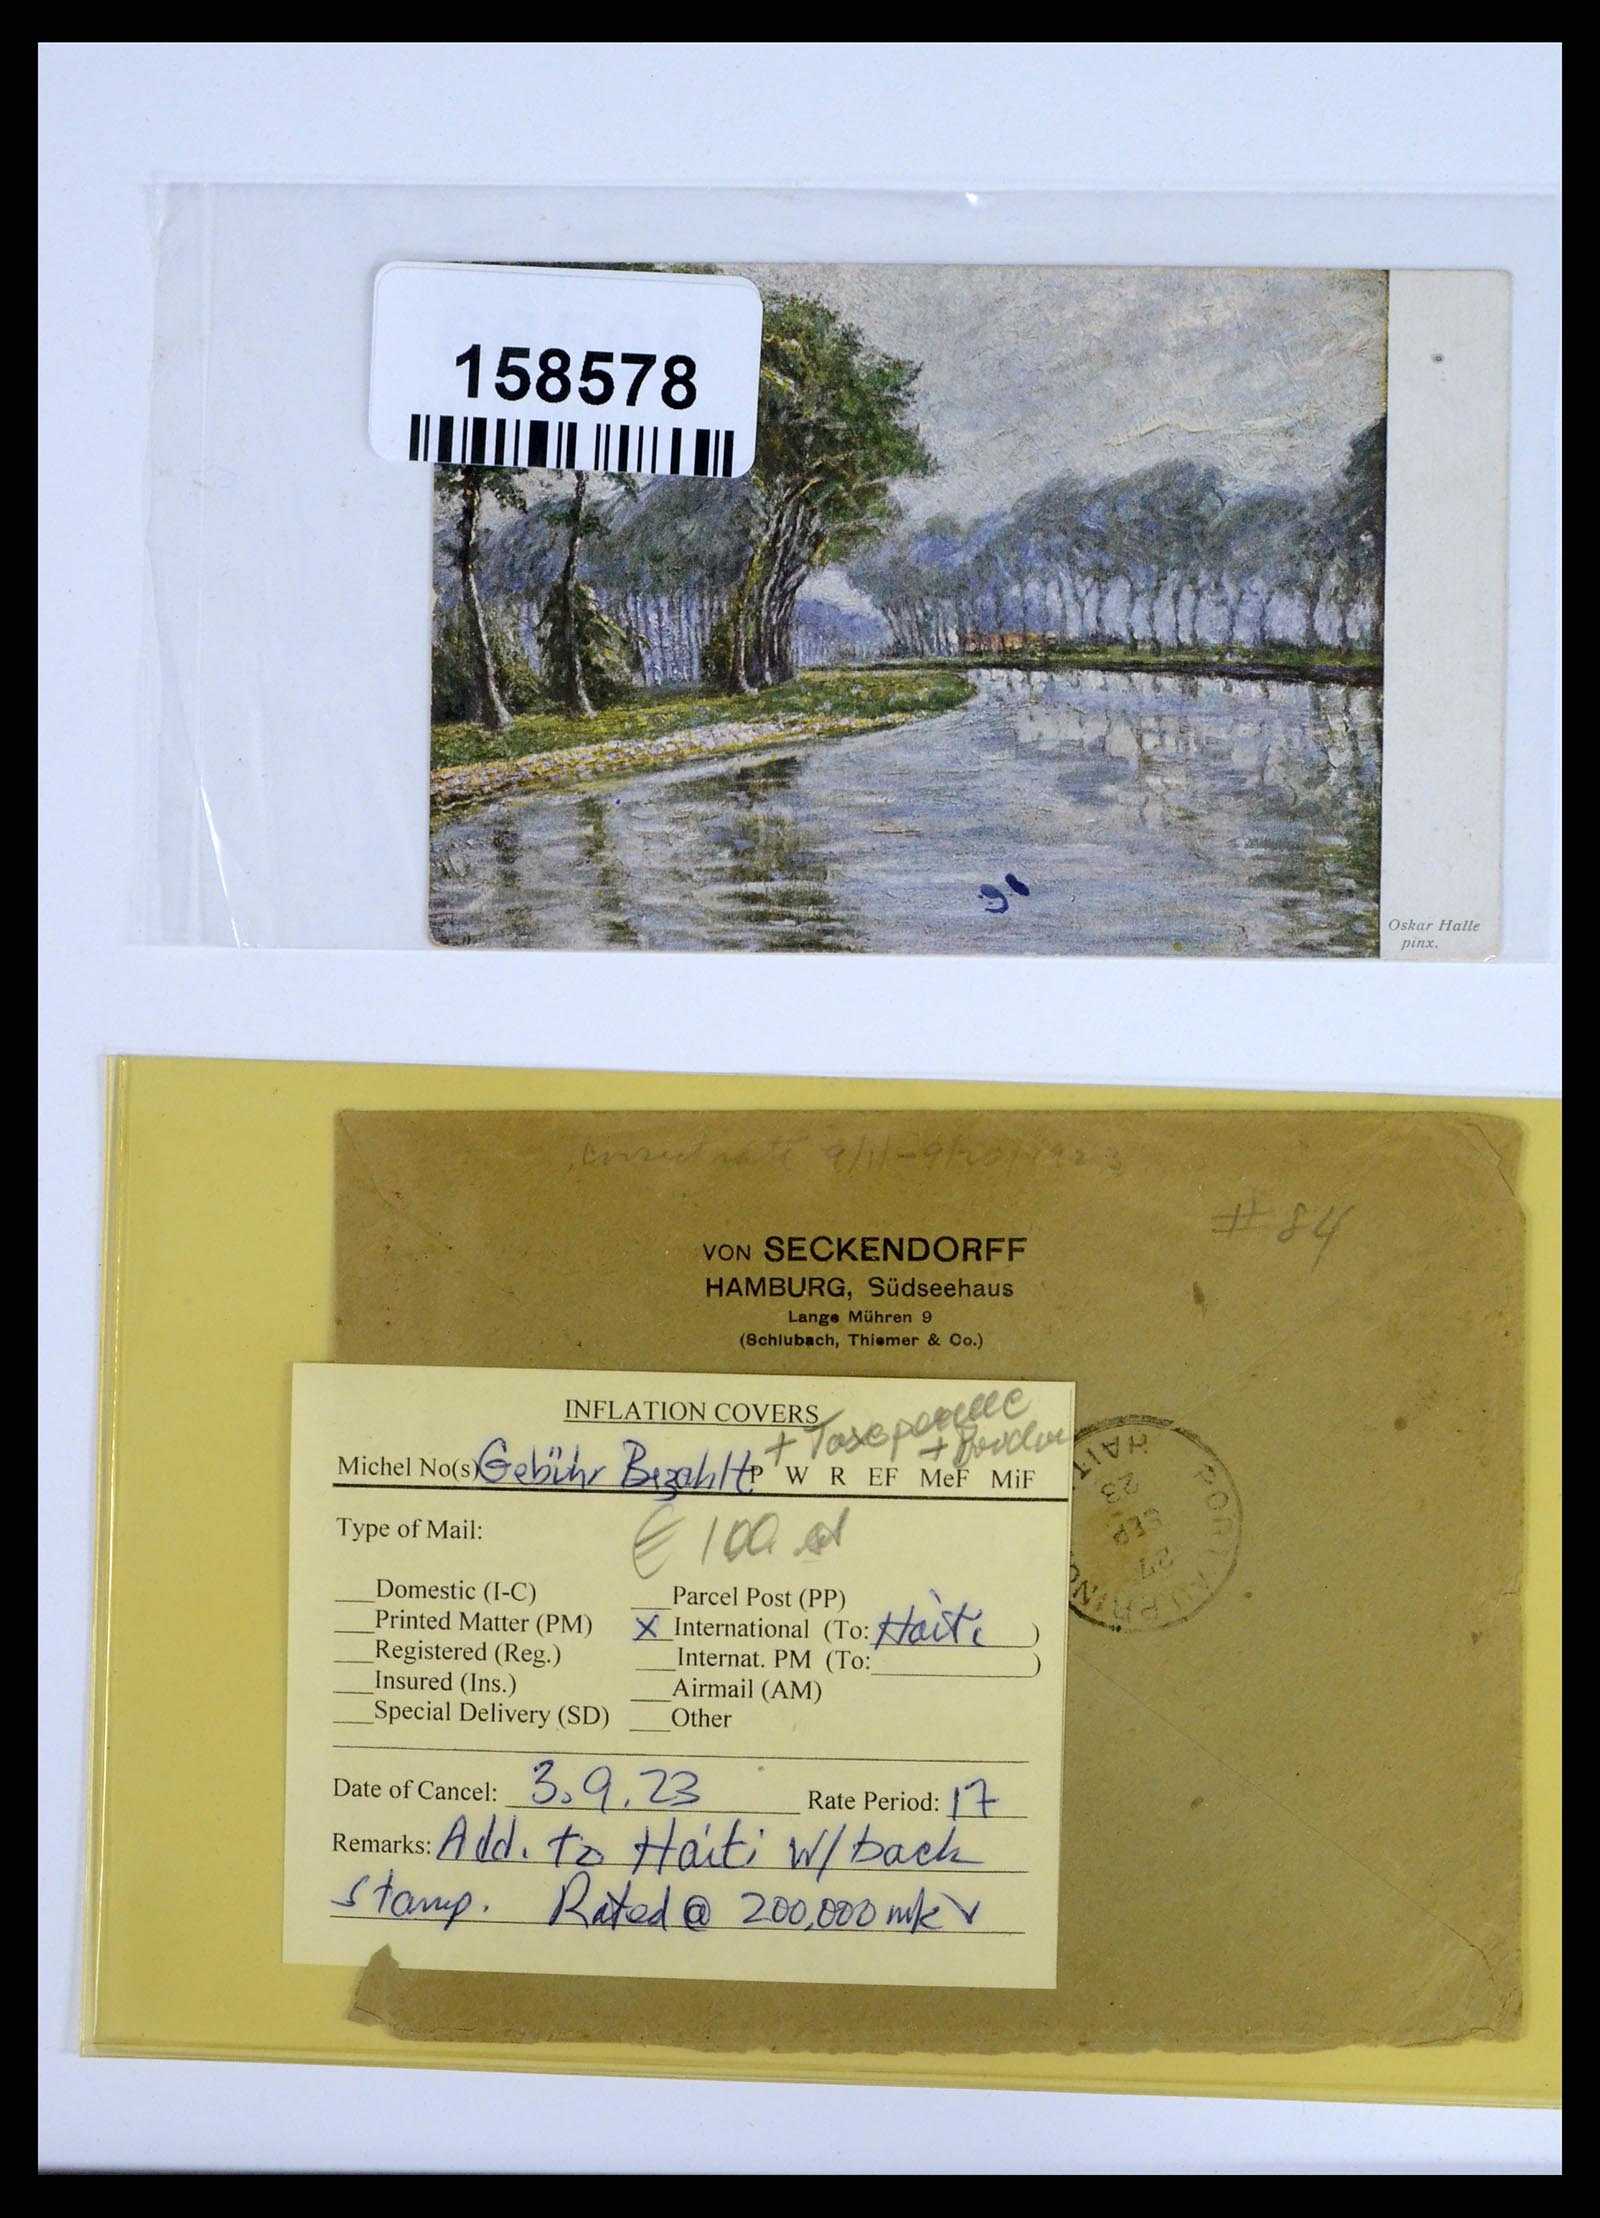 158578
Oskar Halle
pinx.
correct rate 9/11-9/20/1923
# 84
VON SECKENDORFF
HAMBURG, Südseehaus
Lange Mühren 9
(Schlubach, Thiemer & Co.)
INFLATION COVERS
+ Taxe perçue
Michel No(s) Gebühr Bezahlt P W R EF MeF MiF
Type of Mail:
€ 100
Domestic (I-C) Parcel Post (PP)
Printed Matter (PM) X International (To: Haiti)
Registered (Reg.) Internat. PM (To: )
Insured (Ins.) Airmail (AM)
Special Delivery (SD) Other
Date of Cancel: 3.9.23 Rate Period: 17
Remarks: Add. to Haiti w/back
stamp. Rated @ 200,000 mk
PORT AU PRINCE
HAITI
27
SEP
23